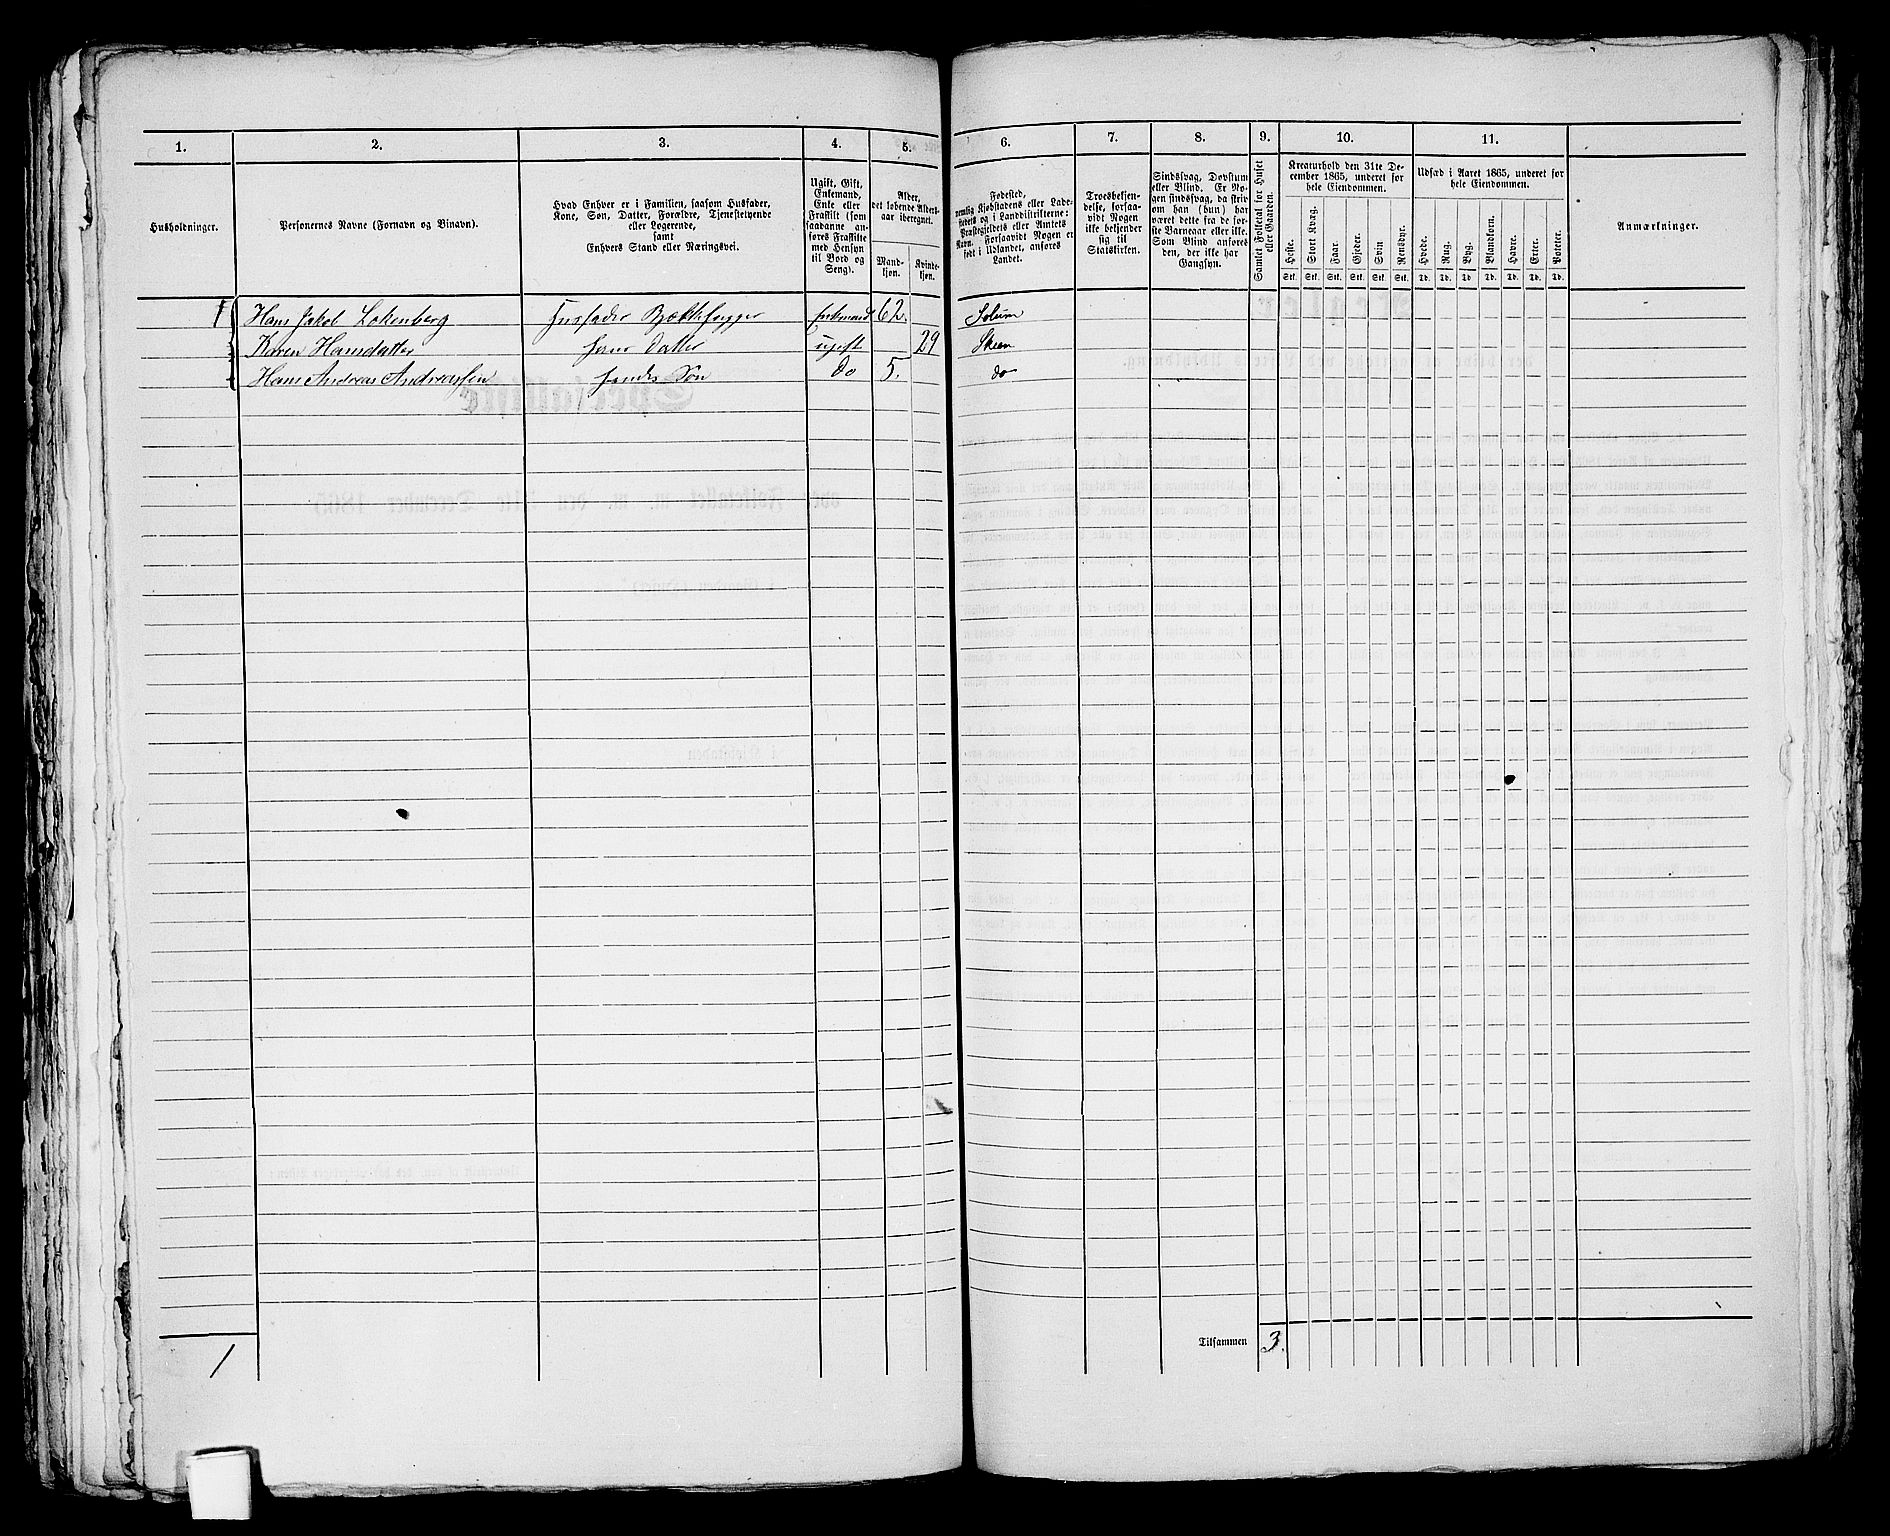 1. 2. 3. 4. 5. 6. 7. 8. 9. 10. 11.
Husholdninger.
Personernes Navne (Fornavn og Binavn).
Hvad Enhver er i Familien, saasom Husfader,
Kone, Søn, Datter, Forældre, Tjenestetyende
eller Logerende,
samt
Enhvers Stand eller Næringsvei.
Ugift, Gift,
Enkemand,
Enke eller
Fraskilt (som
saadanne an-
føres Fraskilte
med Hensyn
til Bord og
Seng).
Alder,
det løbende Alders-
aar iberegnet.
Mand-
kjøn.
Kvinde-
kjøn.
Fødested,
nemlig Kjøbstadens eller Lade-
stedets og i Landdistrikterne:
Præstegjeldets eller Amtets
Navn. Forsaavidt Nogen er
født i Udlandet, anføres
Landet.
Troesbekjen-
delse, forsaa-
vidt Nogen
ikke bekjender
sig til
Statskirken.
Sindssvag, Døvstum
eller Blind. Er No-
gen sindssvag, da skriv
om han (hun) har
været dette fra de før-
ste Barneaar eller ikke.
Som Blind anføres
den, der ikke har
Gangsyn.
Samlet Folketal for Huset
eller Gaarden.
Kreaturhold den 31te De-
cember 1865, underet for
hele Eiendommen.
Heste.
Stort Kvæg.
Faar.
Gjeder.
Svin
Rensdyr.
Stk. Stk. Stk. Stk. Stk. Stk.
Udsæd i Aaret 1865, underet for
hele Eiendommen.
Hvede.
Rug.
Byg.
Blandkorn.
Havre.
Erter.
Poteter.
Td. Td. Td. Td. Td. Td. Td.
Anmærkninger.
1 Hans Jakob Lokenberg Husfader Enkemand 62. Solum
Karen Hansdatter hans Datter ugift 29 Skien
Hans Andreas Andreassen hendes Søn do 5. do
Tilsammen 3.
1